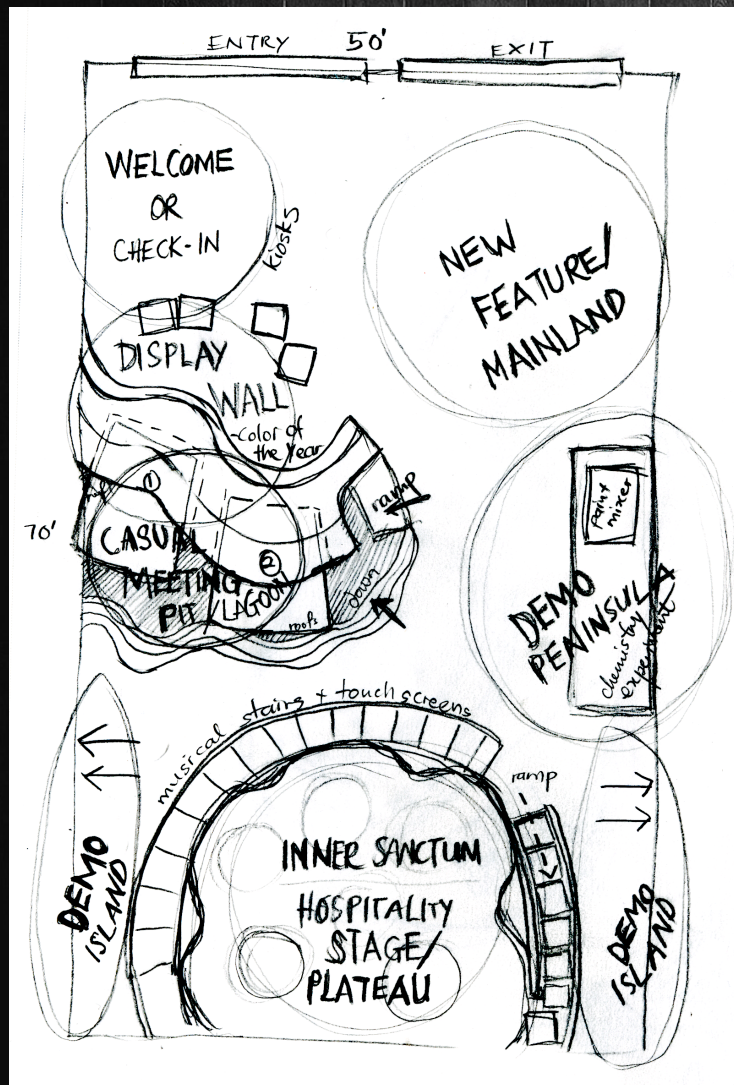 ENTRY
50'
EXIT
WELCOME
OR
CHECK-IN
kiosks
NEW
FEATURE/
MAINLAND
DISPLAY
WALL
-color of
the Year
ramp
1
70'
CASUAL
MEETING
PIT
/LAGOON
2
roofs
down
paint
mixer
DEMO
PENINSULA
chemistry
experiment
musical stairs + touch screens
ramp
DEMO
ISLAND
INNER SANCTUM
HOSPITALITY
STAGE/
PLATEAU
DEMO
ISLAND